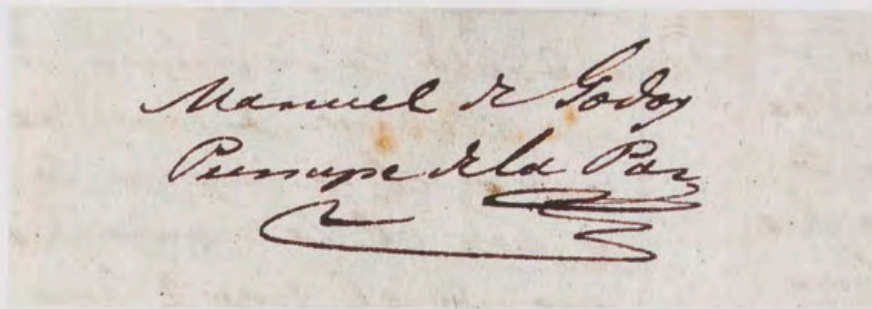 Manuel de Godoy
Principe de la Paz